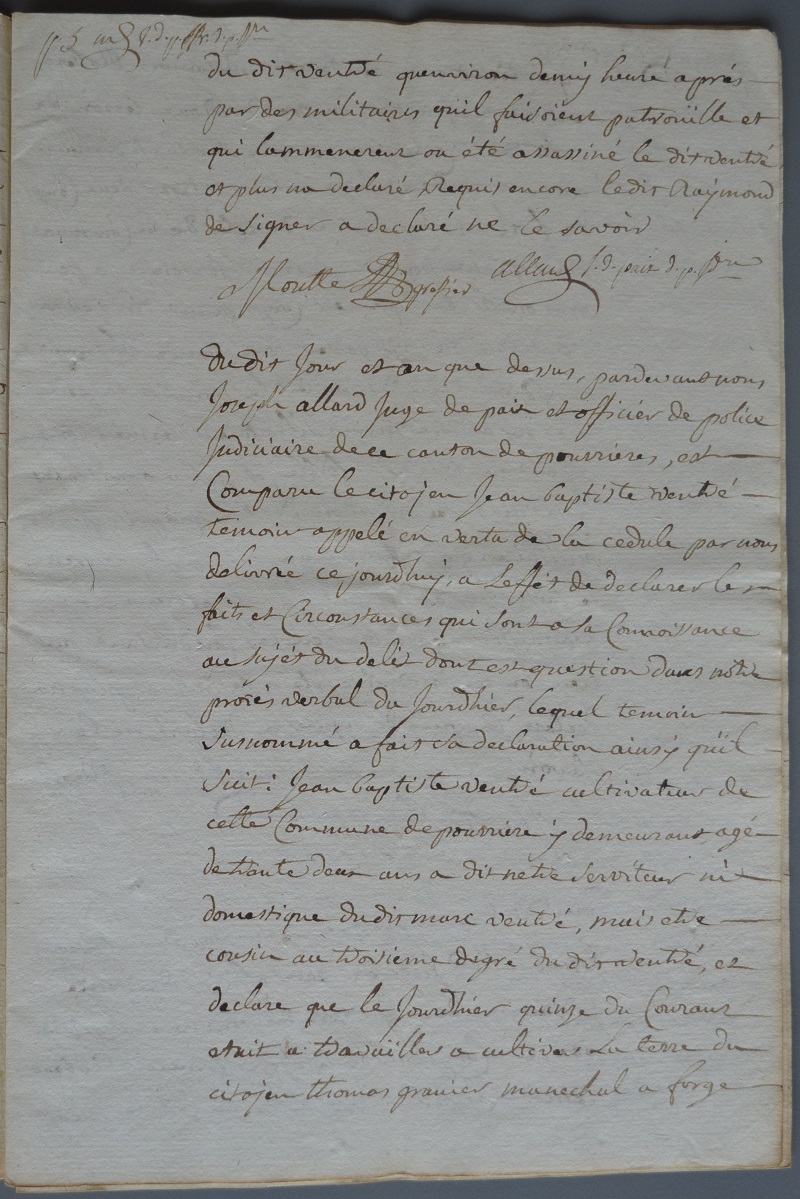 du dit ventré quenviron demy heure aprés
par des militaires quil faisoient patrouille et
qui lammenerent ou été assassiné le dit ventré
et plus na declaré, Requis encore ledit Raymond
de signer a declaré ne le savoir
Moutte greffier allard j. d. paix d. p.
du dit Jour et an que dessus, pardevant nous
Joseph allard Juge de paix et officier de police
Judiciaire de ce canton de pourrieres, est
Comparu le citojen Jean baptiste ventré
temoin appelé en vertu de la cedule par nous
delivrée ce jourdhuy, a Leffet de declarer les
faits et Circonstances qui sont a sa Connoissance
au sujét du delit dont est question dans nôtre
procés verbal du Jourdhier, lequel temoin
susnommé a fait sa declaration ainsy quil
suit: Jean baptiste ventré cultivateur de
cette Commune de pourriere y demeurant, agé
de trante deux ans a dit netre serviteur ni
domestique dudit marc ventré, mais etre
cousin au troisieme degré du dit ventré, et
declare que le Jourdhier quinze du Courant
etait a travailler a cultiver La terre du
citojen thomas granier marechal a forge